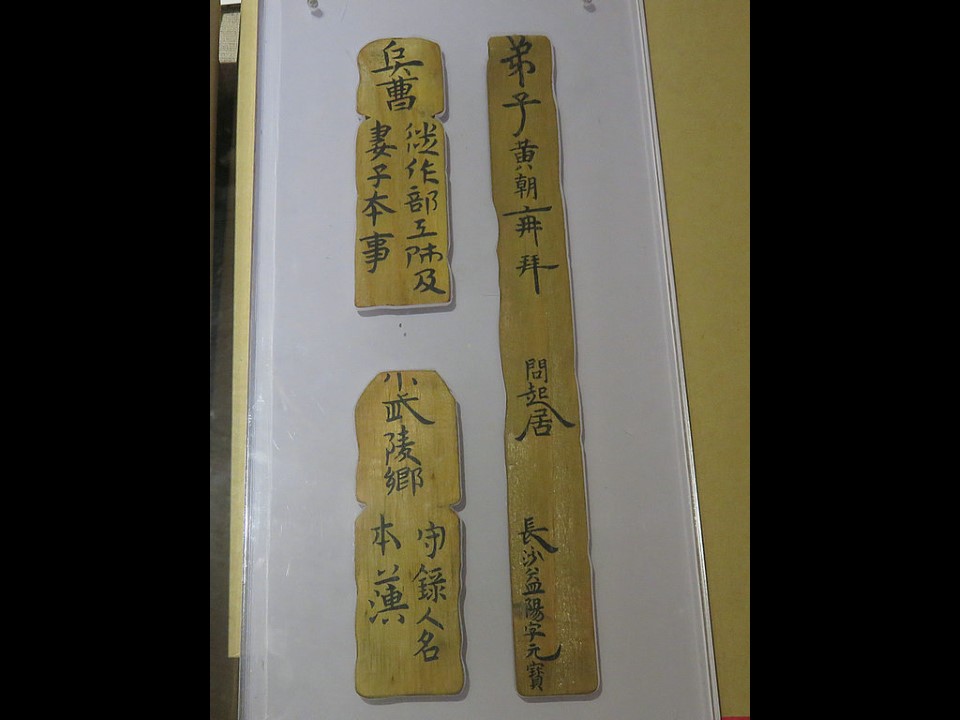 弟子黃朝再拜 問起居 長沙益陽字元寶
兵曹
徙作部工師及
妻子本事
小武陵鄉
守錄人名
本簿